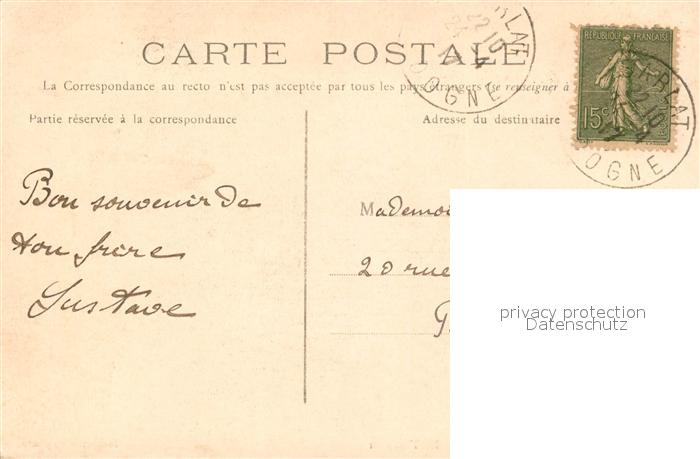 CARTE POSTALE
La Correspondance au recto n'est pas acceptée par tous les pays étrangers (se renseigner à
Partie réservée à la correspondance
Adresse du destinataire
RÉPUBLIQUE FRANÇAISE
15c
RLAT
OGNE
RLAT
OGNE
Bon souvenir de
ton frère
Gustave
Mademoi
20 rue
privacy protection
Datenschutz